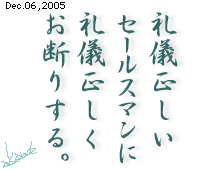 Dec.06,2005
礼儀正しい
セールスマンに
礼儀正しく
お断りする。